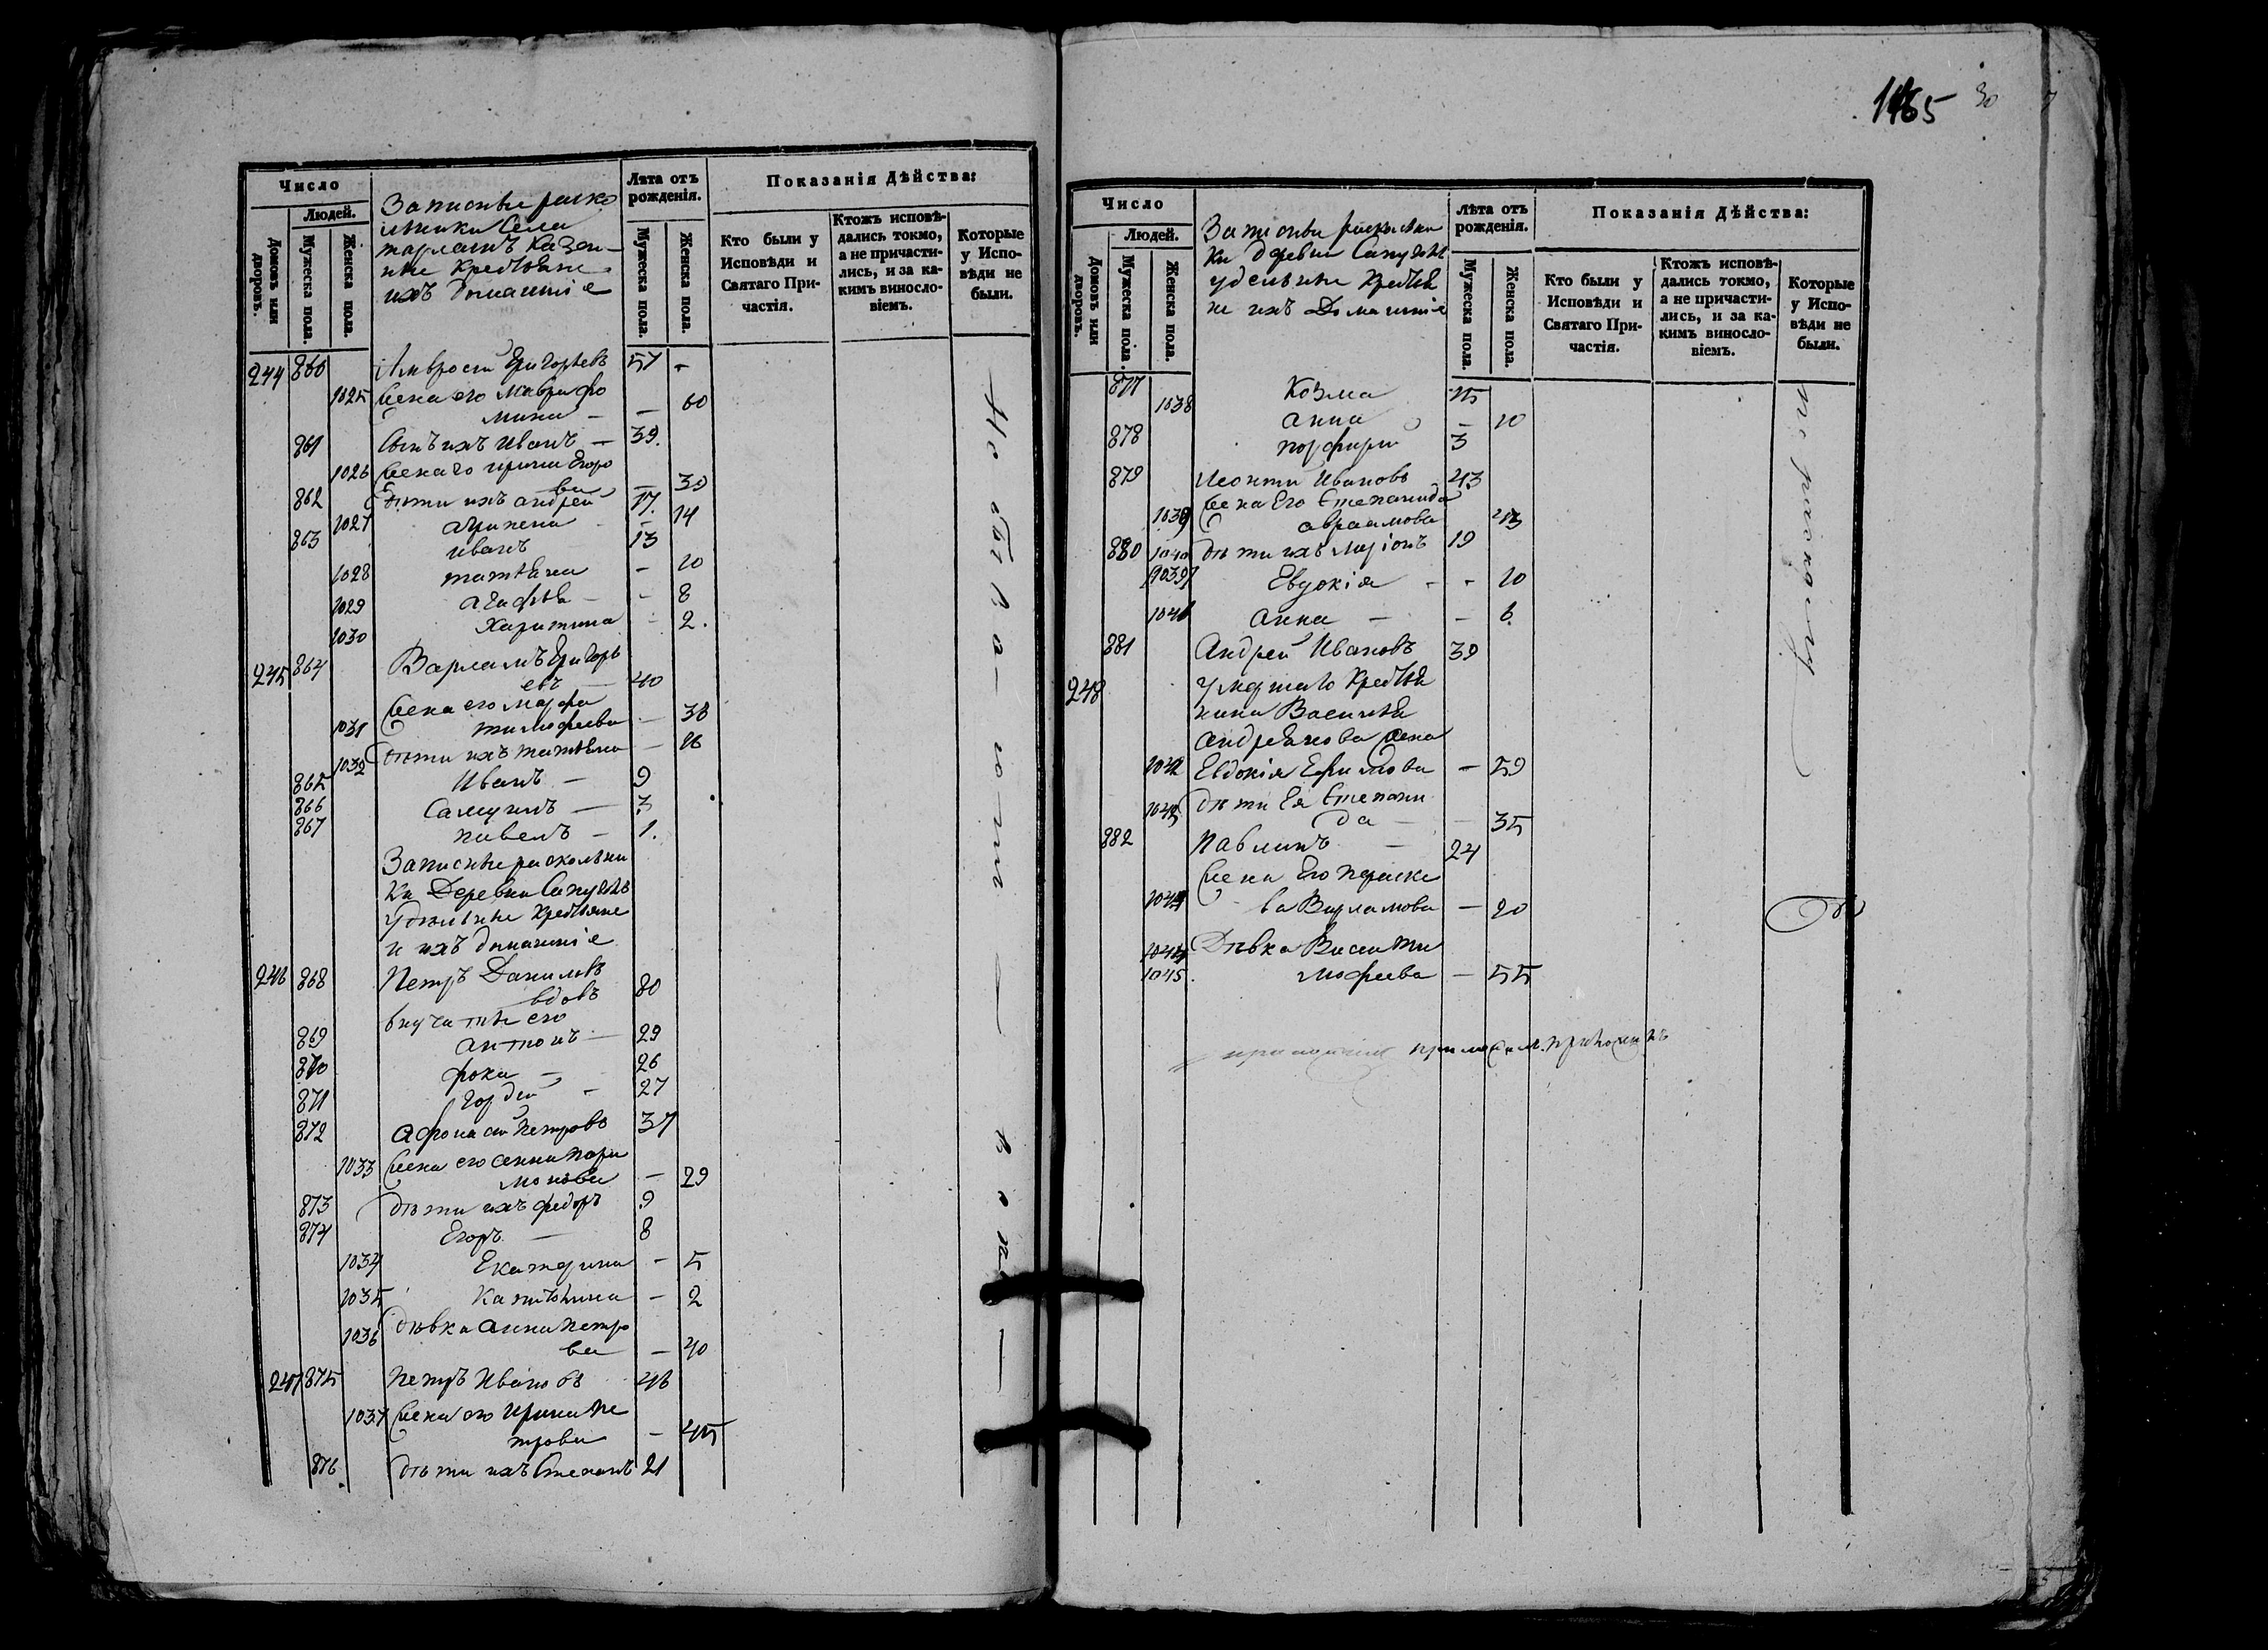 Число
Людей.
Домовъ или дворовъ.
Мужеска пола.
Женска пола.
Записные раско
льники Села
Казен-
ные Крестьяне
ихъ домашніе
Лѣта отъ рожденія.
Мужеска пола.
Женска пола.
Показанія Дѣйства:
Кто были у Исповѣди и Святаго При-частія.
Ктожъ исповѣ-дались токмо, а не причасти-лись, и за ка-кимъ винос­ло-віемъ.
Которые у Испо-вѣди не были.
244 860 Амвросій Григорьевъ 57 -
1025 жена его Мавра Фо
мина - — 60
861 Сынъ ихъ Иванъ — 39.
1026 жена его Ирина Егоро
ва — 39
862 дѣти ихъ Андрей 17.
1027 Агрипена - 14
863 Иванъ 13
1028 татьяна - 10
1029 Агафья — - 8
1030 Харитина - 2.
245 864 Варламъ Григорь
евъ — 40
жена его Марфа
1031 тимофеева - 38
1032 дѣти ихъ татьяна — 16
865 Иванъ — 9
866 Самуилъ — 3
867 павелъ — 1.
Записные расколни
ки Деревни
Удѣльные Крестьяне
и ихъ домашніе
246 868 Петръ Даниловъ
вдовъ 80
внучаты его
869 антонъ — 29
870 фока — 26
871 Гордей - 27
872 Афонасій Петровъ 37
1033 жена его Анна пара
монова — 29
873 дѣти ихъ федоръ 9
874 Егоръ — 8
1034 Екатерина - 5
1035 Капитолина — 2
1036 дѣвка Анна петро
ва — 40
247 875 Петръ Ивановъ 46
1037 жена его Ирина Пе
трова — 45
876 дѣти ихъ Степанъ 21
30
Число
Людей.
Домовъ или дворовъ.
Мужеска пола.
Женска пола.
Записные расколни
ки Деревни
удельные Крестья
не ихъ Домашніе
Лѣта отъ рожденія.
Мужеска пола.
Женска пола.
Показанія Дѣйства:
Кто были у Исповѣди и Святаго При-частія.
Ктожъ исповѣ-дались токмо, а не причасти-лись, и за ка-кимъ винос­ло-віемъ.
Которые у Испо-вѣди не были.
877 Козма 15
1038 Анна - 10
878 порфирій 3
879 Леонтій Ивановъ 43
жена Его Степанида
1039 авраамова 43
880 1040 дѣти ихъ Ларіонъ 19
Евдокія - - 10
1041 Анна — — 6
881 Андрей Ивановъ 39
248 умершаго Крестья
нина Василья
андреянова жена
1042 Евдокія Ефимова — 59
дѣти Ея Степани
да — — 35
882 Павлинъ — 24
жена Его параске
ва Варламова — 20
1044 Дѣвка Васса ти
1045. мофеева — 55
по расколу